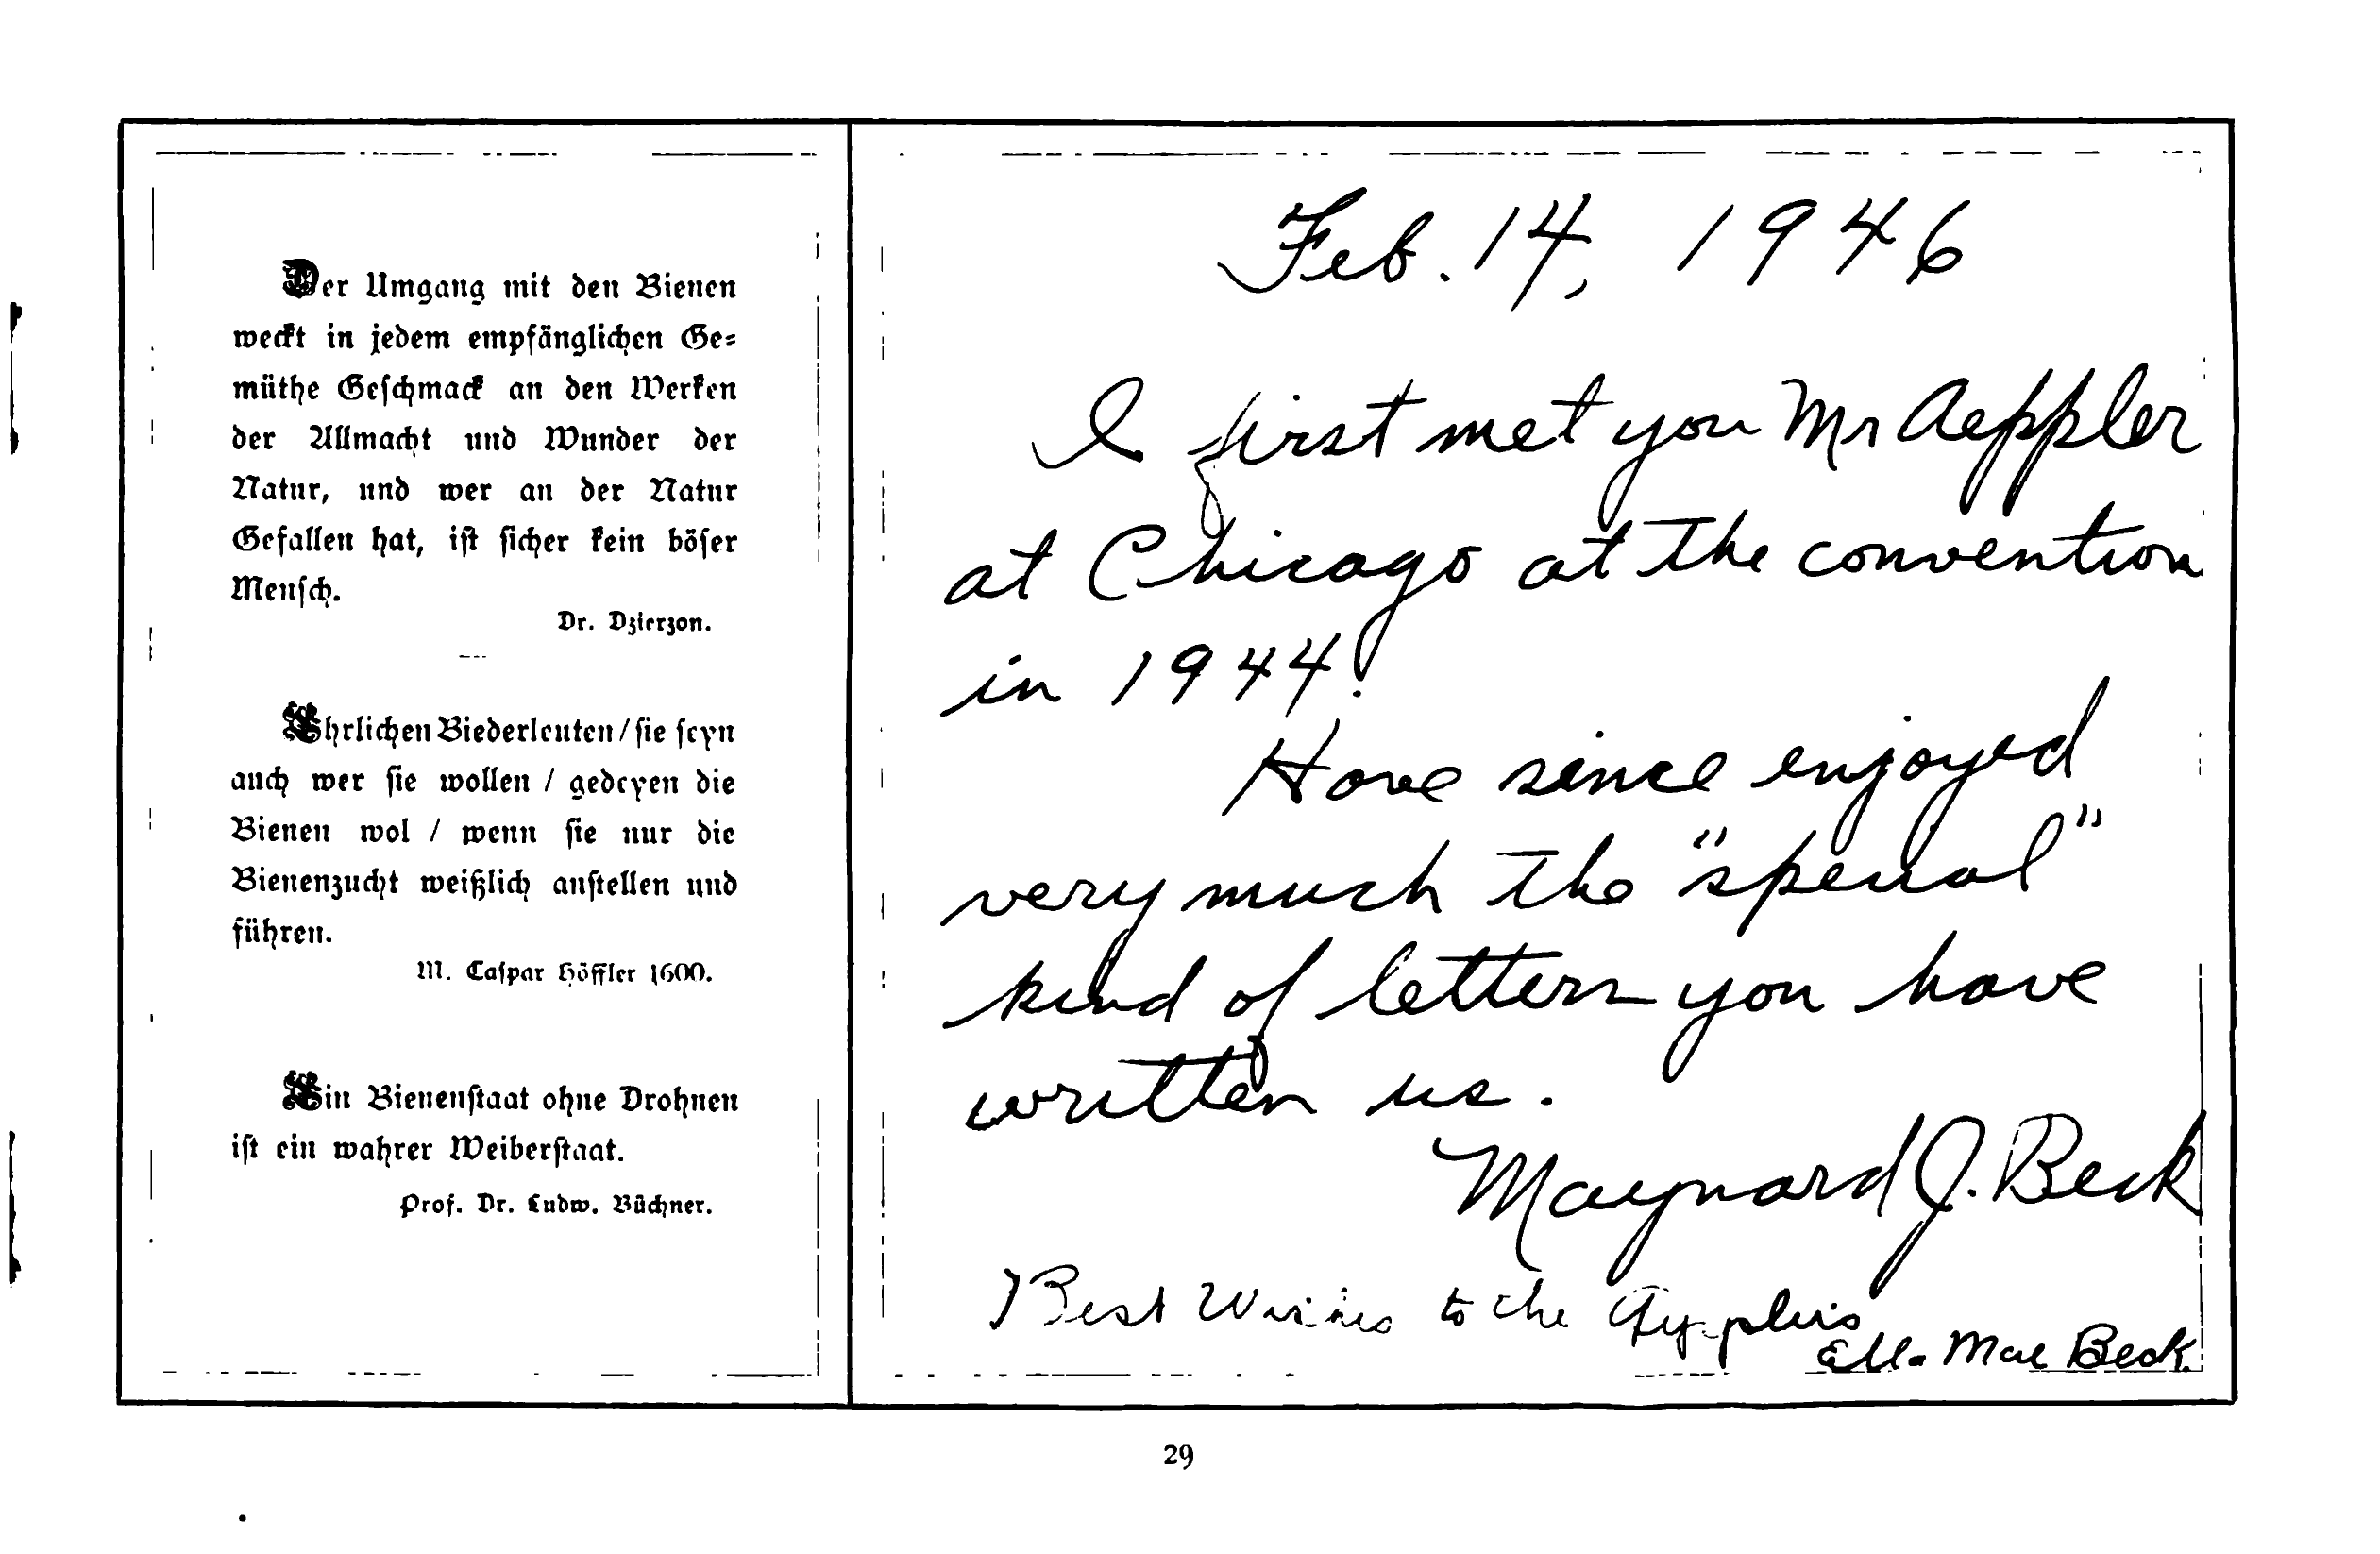 Der Umgang mit den Bienen
weckt in jedem empfänglichen Ge=
müthe Geschmack an den Werken
der Allmacht und Wunder der
Natur, und wer an der Natur
Gefallen hat, ist sicher kein böser
Mensch.
Dr. Dzierzon.
Ehrlichen Biederleuten / sie seyn
auch wer sie wollen / gedeyen die
Bienen wol / wenn sie nur die
Bienenzucht weißlich anstellen und
führen.
M. Caspar Höffler 1600.
Ein Bienenstaat ohne Drohnen
ist ein wahrer Weiberstaat.
Prof. Dr. Ludw. Büchner.
Feb. 14, 1946
I first met you Mr Aeppler
at Chicago at the convention
in 1944.
Have since enjoyed
very much the "special"
kind of letters you have
written us.
Maynard J. Beck
Best Wishes to the Aepplers
Ella Mae Beck
29